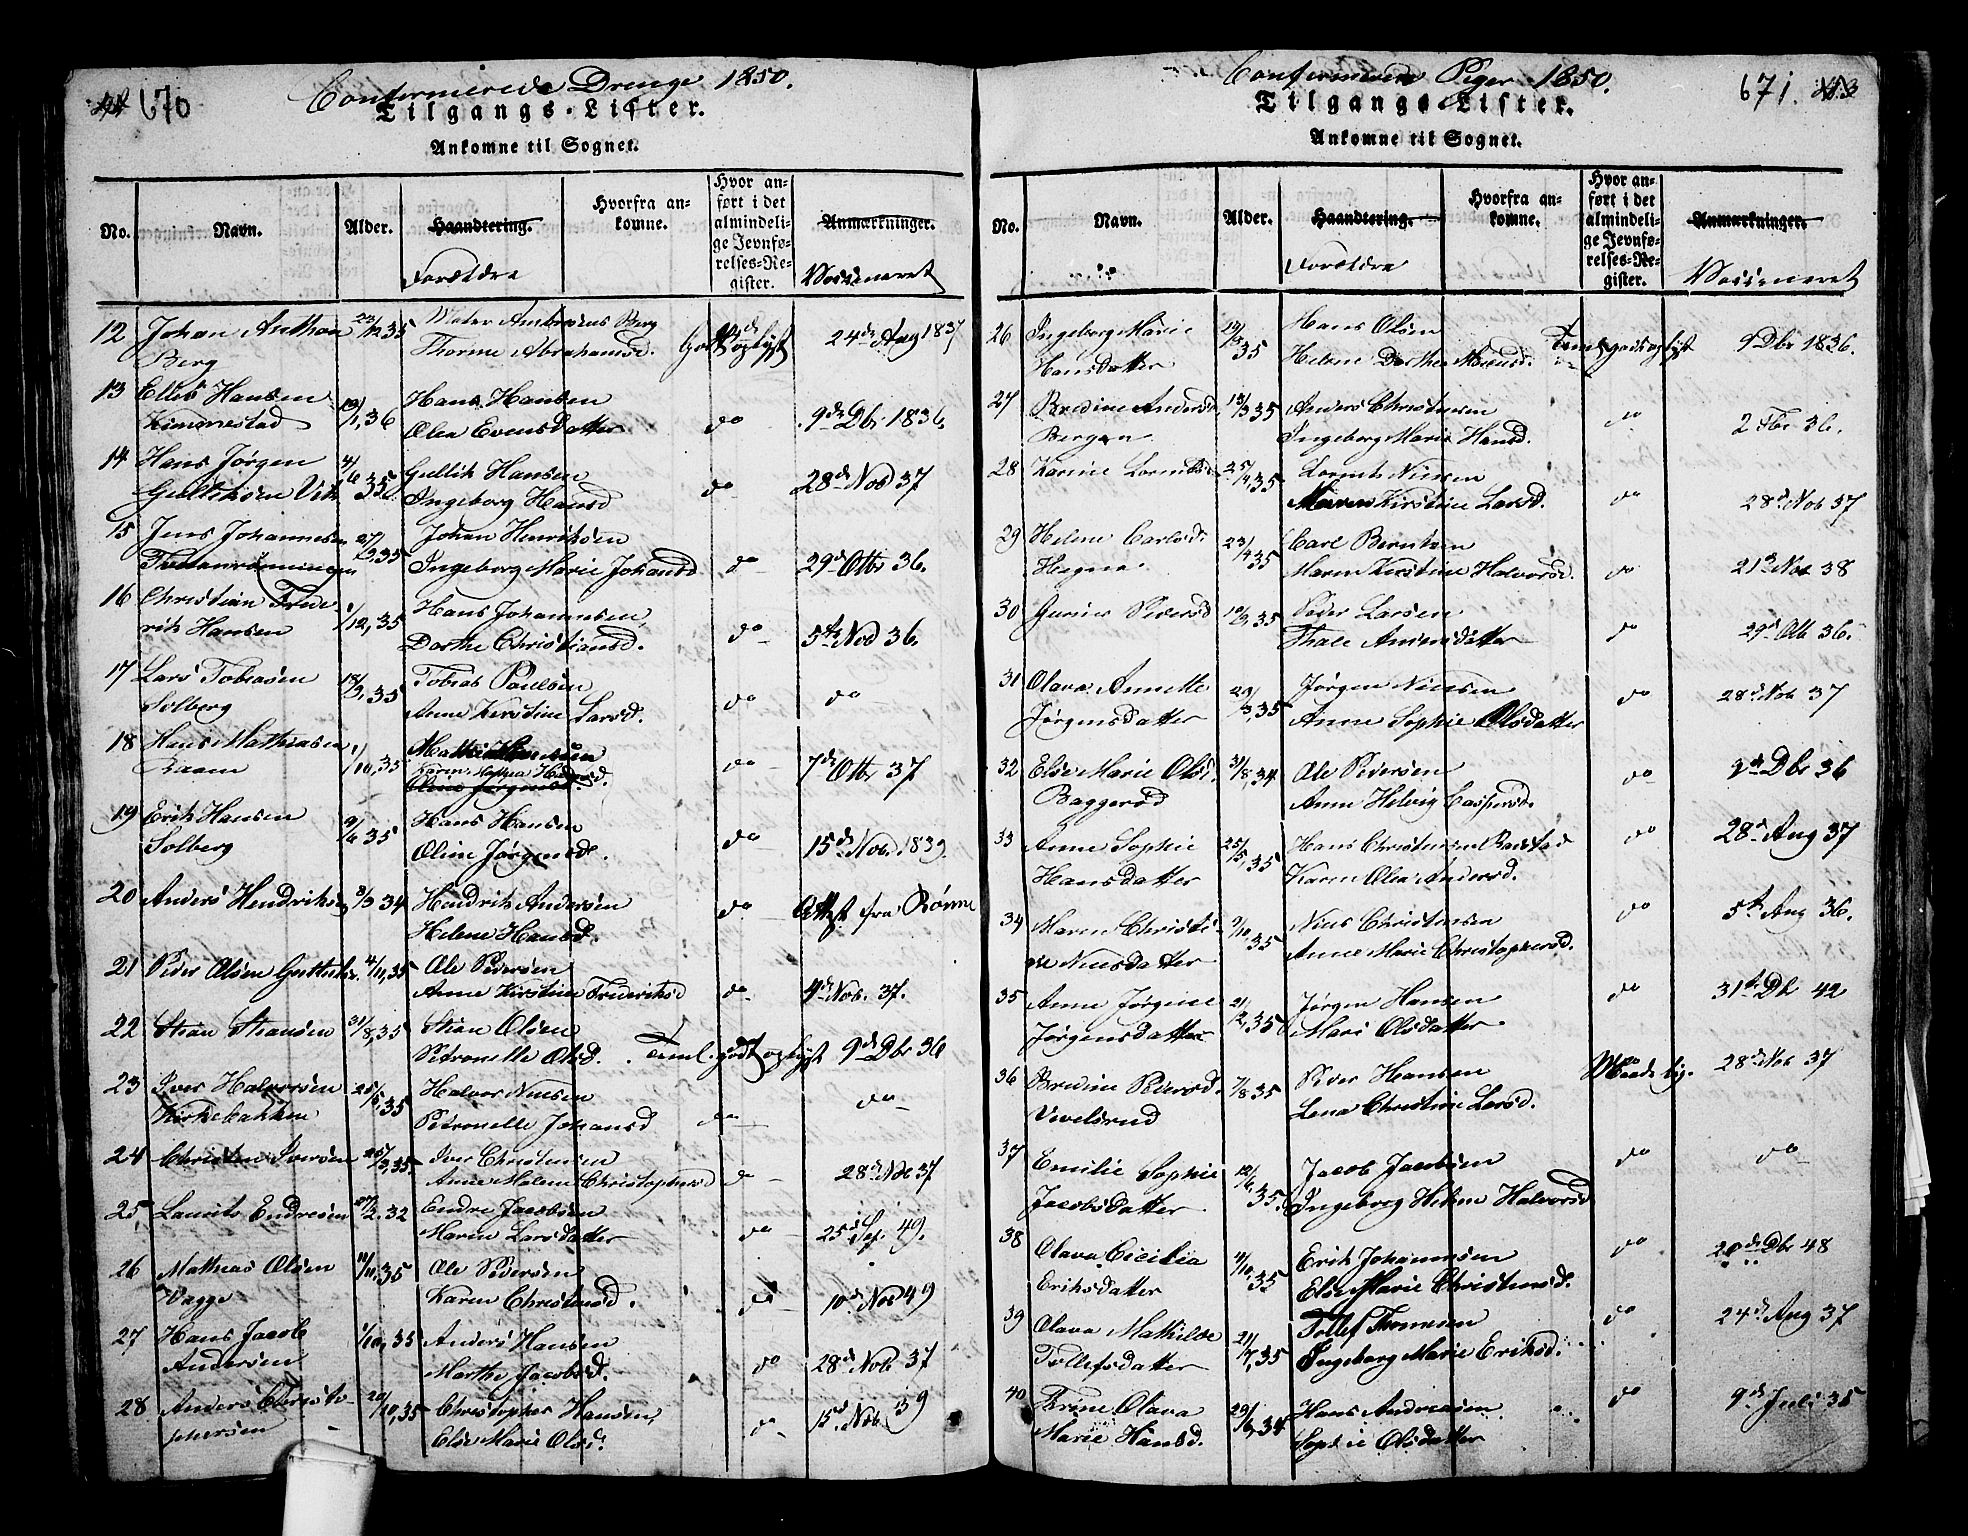 670
Confirmerede Drenge 1850.
Tilgangs-Lister.
Ankomne til Sognet.
No.
Navn.
Alder.
Haandtering.
Forældre
Hvorfra an-
komne.
Hvor an-
ført i det
almindeli-
ge Jevnfø-
relses-Re-
gister.
Anmærkninger.
Vaccineret
12 Johan Anthon 23/12 35 Abrahamsd. 24de Aug 1837
Berg
13 Elles Hansen 13/1, 36 Hans Hansen do 9de Dbr 1836.
Kimmestad Olea Evensdatter
14 Hans Jørgen 4/6 35 Gullik Hansen do 28de Nov 37
Gulliksen Vik Ingeborg Hansd
15 Jens Johannesen 27/ 35 Johan Henriksen do 29de Otbr 36.
Ingeborg Marie Johansd
16 Christian Frede 1/12, 35 Hans Johannesen, do 5te Nov 36.
rik Hansen Dorthe Christiansd.
17 Lars Tobiasen 18/9, 35 Tobias Paulsen do do
Solberg Anne Kirstine Larsd.
18 Hans Mathiasen 1/10, 35 do 7de Otbr 37
Raaen
19 Erik Hansen 9/6 35 Hans Hansen do 15de Nov. 1839.
Solberg Oline Jørgensd.
20 Anders Hendriksen 3/3 34 Hendrik Andersen do Attest fra Rønne
Helene Hansd.
21 Peder Olsen 4/11, 35 Ole Pedersen do 4de Nov. 37.
Anne Kirstine Frederiksd
22 Stian Stiansen 31/8, 35 Stian Olsen Teml. godt oplyst 9de Dbr 36
Petronelle Olsd.
23 Iver Halvorsen 25/5, 35 Halvor Nielsen do do
Kirkebakken Petronelle Johansd
24 Christen Iversen 25/3, 35. Iver Christensen do 28de Nov 37
Anne Malene Christophersd
25 Laurits Endresen 27/2, 32 Endre Jacobsen do 25de Sep. 49.
Maren Larsdatter
26 Mathias Olsen 11/11, 35 Ole Pedersen do 10de Nov 49
Vagge Karen Christensd.
27 Hans Jacob 1/10, 35 Anders Hansen do 28de Nov 37
Andersen Marthe Jacobsd.
28 Anders Christo- 20/10, 35 Christopher Hansen, do 15de Nov. 39
phersen Else Marie Olsd.
Confirmerede Piger 1850.
671.
Tilgangs-Lister.
Ankomne til Sognet.
No.
Navn.
Alder.
Haandtering.
Forældre
Hvorfra an-
komne.
Hvor an-
ført i det
almindeli-
ge Jevnfø-
relses-Re-
gister.
Anmærkninger.
Vaccineret
26 Ingeborg Marie 35 Hans Olsen 9 Dbr 1836.
Hansdatter Helene Dorthea
27 Bredine Andersd 13/3 35 Anders Christensen do 2 Fbr 36.
Bergan Ingeborg Marie Hansd.
28 Karine Lorentsd 25/4, 35 Lorents Nielsen do 28de Nov 37
Maren Kirstine Larsd.
29 Helene Carlsd. 23/4 35 Carl Berntsen do 21de Nov 38
Haugen Maren Kirstine Halvorsd.
30 Gunner Pedersd 10/3, 35 Peder Larsen do 29de Otb 36.
Thale Andersdatter
31 Olava Annette 29/3, 35 Jørgen Nielsen do 28de Nov 37
Jørgensdatter Anne Sophie Olsdatter
32 Else Marie Olsd. 31/8, 34 Ole Pedersen do 9de Dbr 36
Baggerød Anne Helvig Caspersd.
33 Anne Sophie 25/5, 35 Hans Christensen do 28de Aug 37
Hansdatter Karen Olea Andersd.
34 Maren Christi- 9/10, 35 Niels Christensen do 5te Aug 36.
ne Nielsdatter Anne Marie Christophersd.
35 Anne Jørgine 21/2, 35 Jørgen Hansen do 31te Db 42
Jørgensdatter Mari Olsdatter
36 Bredine Pedersd. 7/8 35 Peder Hansen Maadelig. 28de Nov 37
Vivelsrud Lena Christine Larsd.
37 Emilie Sophie 12/6, 35. Jacob Jacobsen do do
Jacobsdatter Ingeborg Helene Halvorsd
38 Olava Cicilia 11/10, 35 Erik Johannesen do 20de Dbr 48
Eriksdatter Else Marie Christensd.
39 Olava Mathilde 21/7, 35 Tollef Thomesen do 24de Aug 37
Tollefsdatter Ingeborg Marie Eriksd.
40 Trine Olava 29/6, 34 Hans Andreasen do 9de Juli 35
Marie Hansd. Sophie Olsdatter